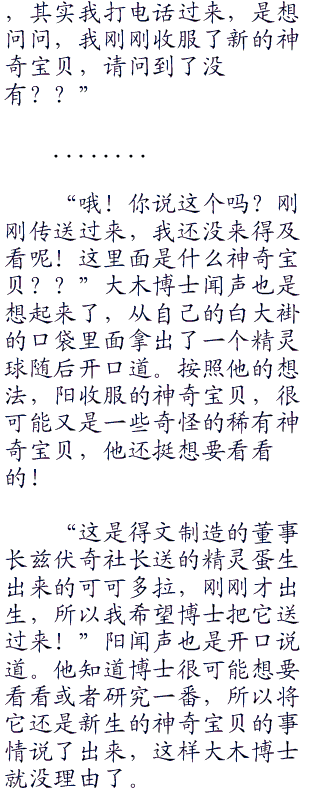 ，其实我打电话过来，是想
问问，我刚刚收服了新的神
奇宝贝，请问到了没
有？？”
........
“哦！你说这个吗？刚
刚传送过来，我还没来得及
看呢！这里面是什么神奇宝
贝？？”大木博士闻声也是
想起来了，从自己的白大褂
的口袋里面拿出了一个精灵
球随后开口道。按照他的想
法，阳收服的神奇宝贝，很
可能又是一些奇怪的稀有神
奇宝贝，他还挺想要看看
的！
“这是得文制造的董事
长兹伏奇社长送的精灵蛋生
出来的可可多拉，刚刚才出
生，所以我希望博士把它送
过来！”阳闻声也是开口说
道。他知道博士很可能想要
看看或者研究一番，所以将
它还是新生的神奇宝贝的事
情说了出来，这样大木博士
就没理由了。